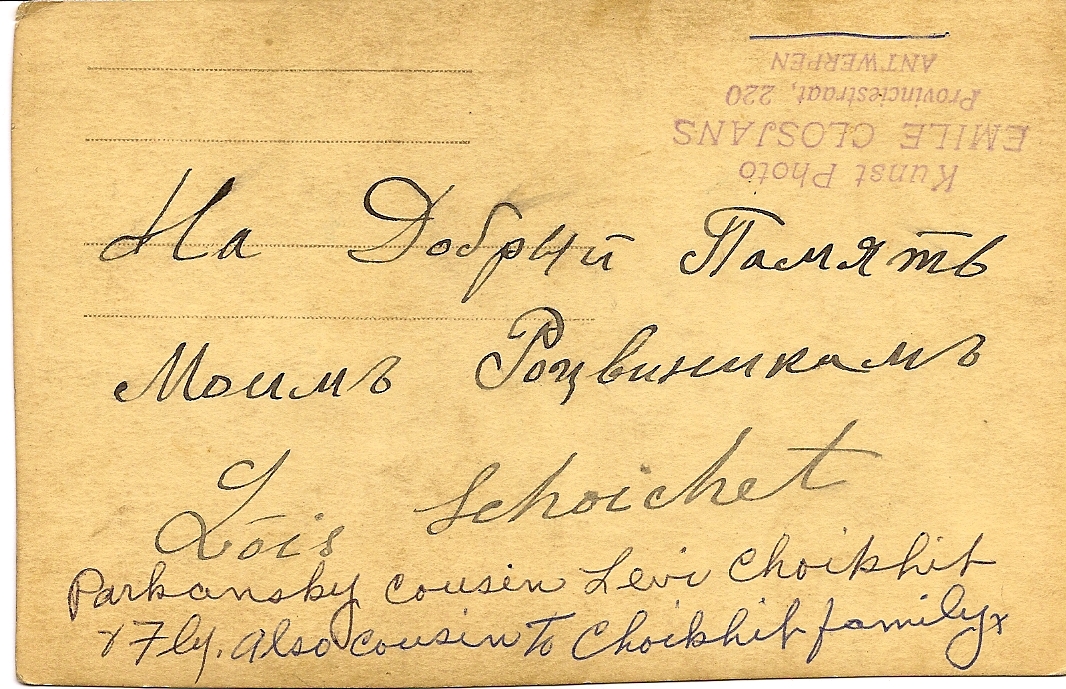 Kunst Photo
EMILE CLOSJANS
Provinciestraat, 220
ANTWERPEN
На Добрий Память
Моимъ Роцвиникамъ
Loïs Schoichet
Parkansky cousin Levi Choikhit
+ Fly. Also cousin to Choikhit family